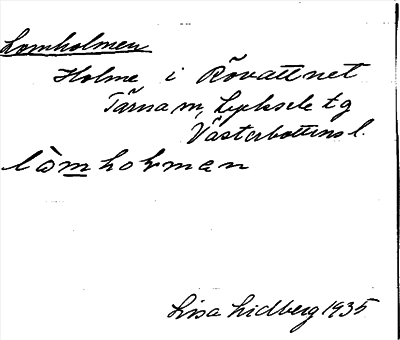 Lomholmen
Holme i Rövattnet
Tärna m, Lycksele tg
Västerbottens l.
lòmholman
Lisa Lidberg 1935